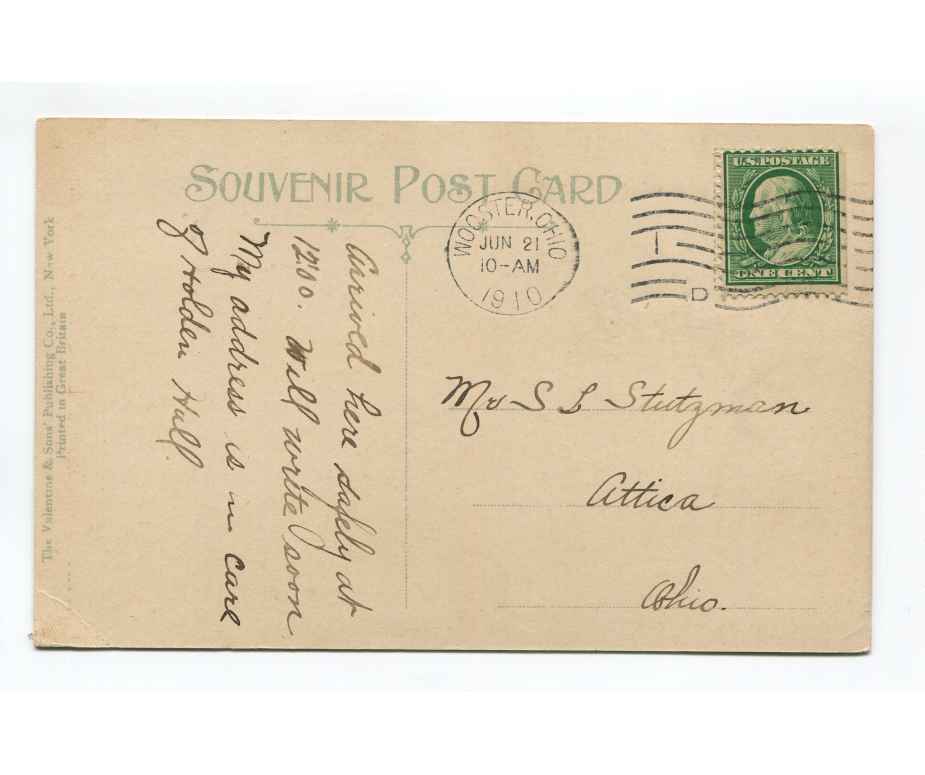 SOUVENIR POST CARD
The Valentine & Sons' Publishing Co., Ltd., New York
Printed in Great Britain
Arrived here safely at
12:10. Will write soon
My address is in care
of Holden Hall
WOOSTER, OHIO
JUN 21
10-AM
1910
1
D
U.S. POSTAGE
ONE CENT
Mr S L Stutzman
Attica
Ohio.